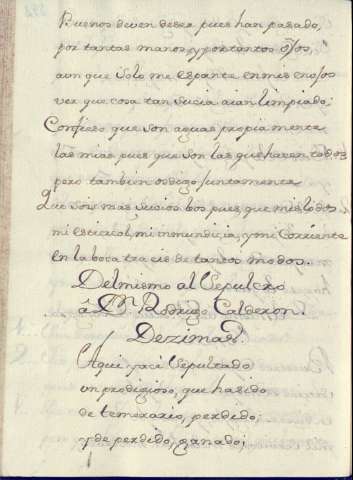 Buenos deven de ser pues han pasado,
por tantas manos, y por tantos ojos,
aun que solo me espante en mis enojos
ver que cosa tan sucia aian limpiado;
Confieso que son aguas propiamente
las mias pues que son las que haven todos
pero tambien os digo juntamente
Que sois mas sucios bos pues que mis lodos
mi estiercol, mi inmundicia, y mi Corriente
en la boca traeis de tantos modos.
Del mismo al Sepulcro
â Dn Rodrigo Calderon.
Dezimas.
Aqui yaci sepultado
un prodigioso, que ha sido
de temerario, perdido,
y de perdido, ganado;